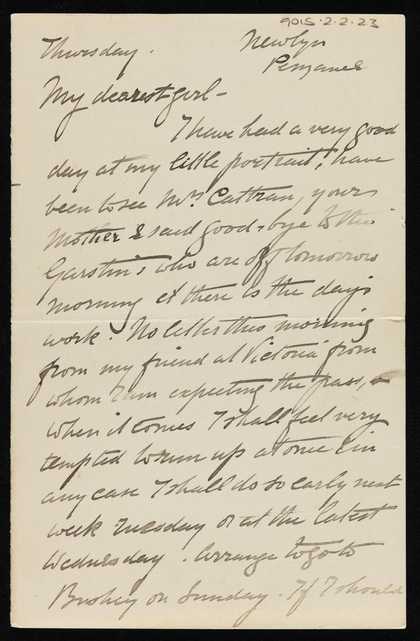 9015-2-2-23
Thursday. Newlyn
Penzance
My dearest girl -
I have had a very good
day at my little portrait, have
been to see Mrs. Cattran, your
Mother & said good-bye to the
Garstin's who are off tomorrow
morning & there is the day's
work. No letter this morning
from my friend at Victoria from
whom I am expecting the pass, &
when it comes I shall feel very
tempted to run up at once & in
any case I shall do so early next
week Tuesday or at the latest
Wednesday. Arrange to go to
Bushey on Sunday. If I should